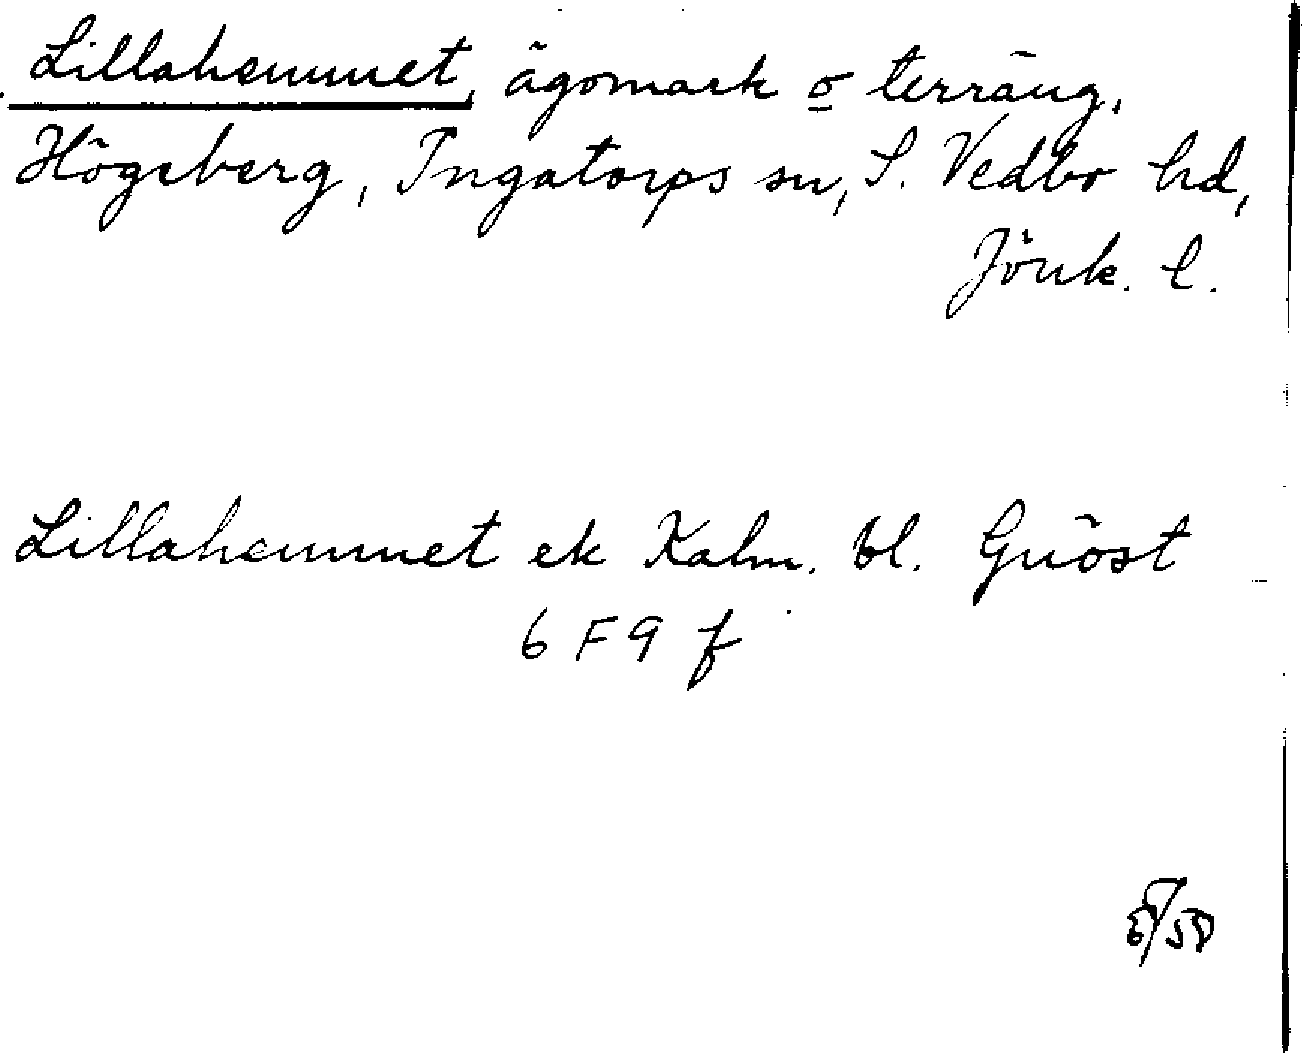 Lillahemmet, ägomark o terräng,
Högeberg, Ingatorps sn, S. Vedbo hd,
Jönk. l.
Lillahemmet ek Kalm. bl. Gnöst
6 F 9 f